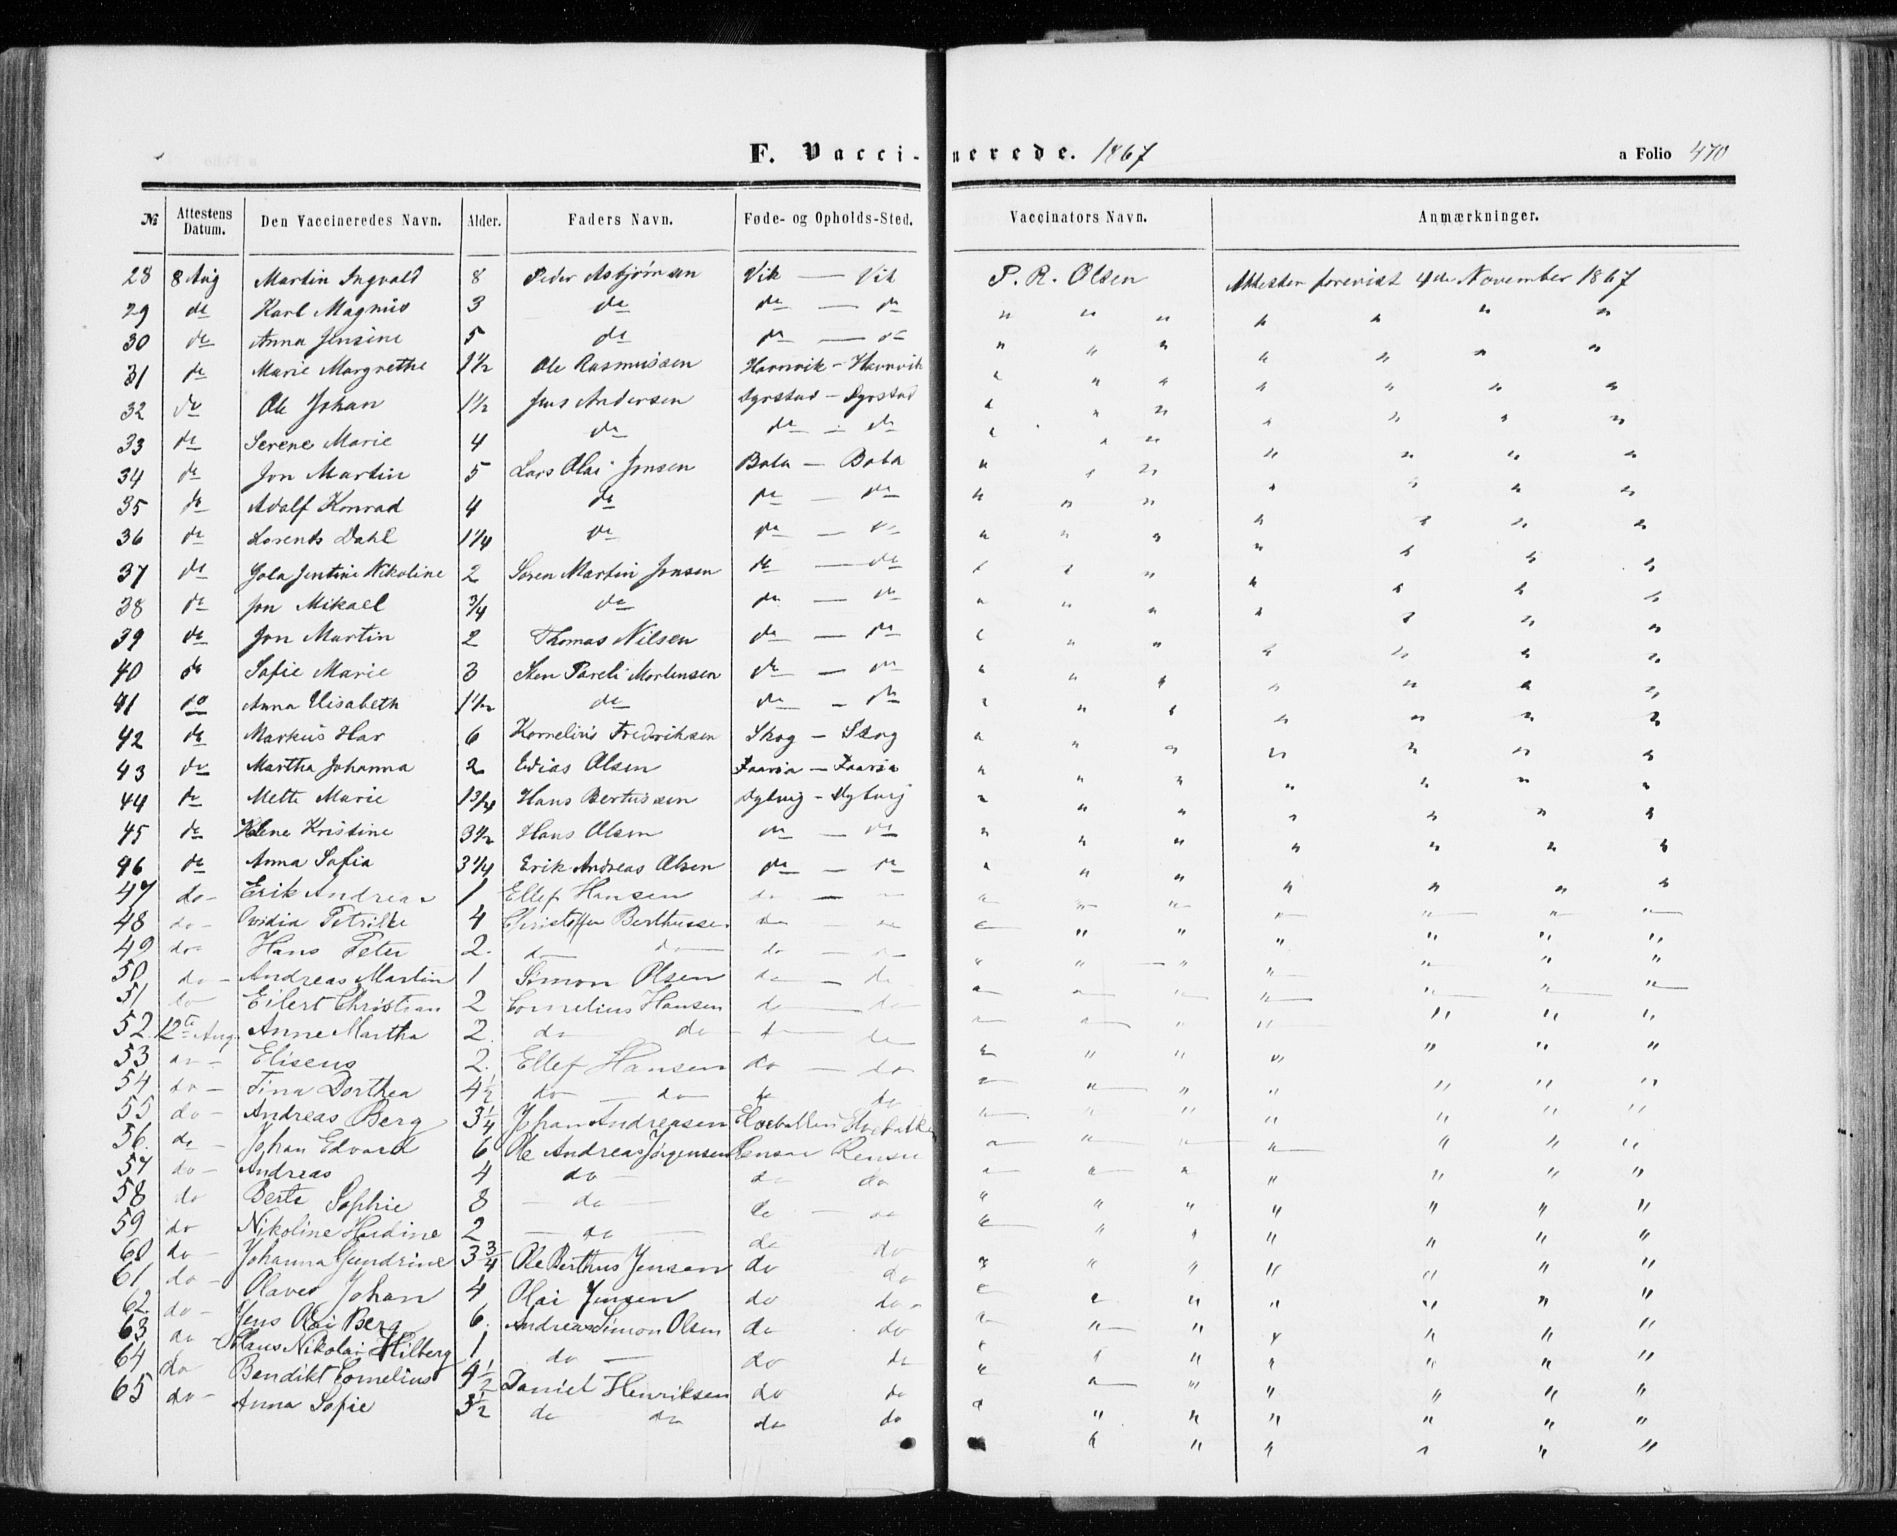 F. Vacci-nerede. 1867 a Folio 470
№ Attestens Datum. Den Vaccineredes Navn. Alder. Faders Navn. Føde- og Opholds-Sted. Vaccinators Navn. Anmærkninger.
28 8 Aug Martin Ingvald 8 Peder Asbjørnsen Vik — Vik P. R. Olsen Attester forevist 4de November 1867
29 do Karl Magnus 3 do do — do " " " " " " "
30 do Anna Jensine 5 do do — do " " " " " " "
31 do Marie Margrethe 1½ Ole Rasmussen Havnvik — Havnvik " " " " " " "
32 do Ole Johan 1½ Jens Andersen Dyrstad — Dyrstad " " " " " " "
33 do Serene Marie 4 do do — do " " " " " " "
34 do Jon Martin 5 Lars Olai Jonsen Bola — Bola " " " " " " "
35 do Adolf Konrad 4 do do — do " " " " " " "
36 do Lorents Dahl 1¼ do do — do " " " " " " "
37 do Jentine Nikoline 2 Søren Martin Jonsen do — do " " " " " " "
38 do Jon Mikael ¾ do do — do " " " " " " "
39 do Jon Martin 2 Thomas Nilsen do — do " " " " " " "
40 do Sofie Marie 3 Sten Pareli Mortensen do — do " " " " " " "
41 do Anna Elisabeth 1½ do do — do " " " " " " "
42 do Markus Har 6 Kornelius Fredriksen Skog — Skog " " " " " " "
43 do Martha Johanna 2 Edias Olsen " " " " " " "
44 do Mette Marie 1¾ Hans Bertussen Dybvig — Dybvig " " " " " " "
45 do Kristine 3½ Hans Olsen do — do " " " " " " "
46 do Anna Sofia 3¼ Erik Andreas Olsen do — do " " " " " " "
47 do Erik Andreas 1 Ellef Hansen do — do " " " " " " "
48 do Ovidia Petrikke 4 Christoffer Berthussen do — do " " " " " " "
49 do Hans Peter 2. do do do — do " " " " " " "
50 do Andreas Martin 1 Simon Olsen do — do " " " " " " "
51 do Eilert Christian 2 Cornelius Hansen do — do " " " " " " "
52 12te Aug. Anne Martha 2. do do do — do " " " " " " "
53 do Eliseus 2. Ellef Hansen do — do " " " " " " "
54 do Tina Dorthea 4½ do — do do do " " " " " " "
55 do Andreas Berg 3¼ Johan Andreasen Elvebakken Elvebakken " " " " " " "
56. do Johan Edvard 6 Ole Andreas Jørgensen Rensaa Rensaa " " " " " " "
57 do Andreas 4 do do do " " " " " " "
58 do Berte Sophie 8 — do — do — do " " " " " " "
59 do Nikoline Hardine 2 — do — do do " " " " " " "
60 do Johanna Gundrine 3¾ Ole Berthus Jensen do do " " " " " " "
61 do Olaves Johan 4 Olai Jensen do do " " " " " " "
62. do Jens Olai Berg 6. Andreas Simon Olsen do do " " " " " " "
63 do Nikolai Hilberg 1 do — do do " " " " " " "
64 do Bendikt Cornelius 4½ Daniel Henriksen do do " " " " " " "
65 do Anna Sofie 3½ do do do do " " " " " " "